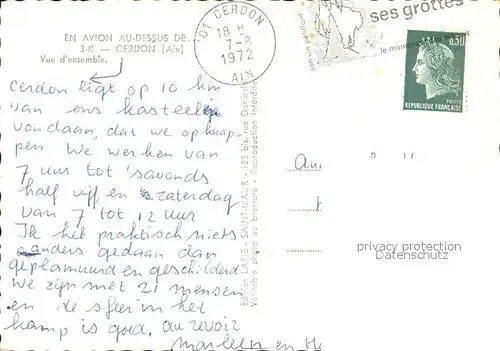 EN AVION AU-DESSUS DE...
CERDON (Ain)
Vue d'ensemble.
01 CERDON
18 H
7-8
1972
AIN
ses grottes
le monument
0,50
POSTES
REPUBLIQUE FRANÇAISE
Cerdon ligt op 10 km
van ons kasteeltje
vandaan, dat we opknap-
pen. We werken van
7 uur tot 'savonds
half vijf en zaterdag
van 7 tot 12 uur
Ik heb praktisch niets
anders gedaan dan
geplamuurd en geschilderd
we zijn met 21 mensen
en de sfeer in het
kamp is goed, au revoir
Marleen en
Edition LAPIE - SAINT-MAUR - 125 bis, rue Garibaldi
Véritable photo au bromure - Reproduction interdite
privacy protection
Datenschutz